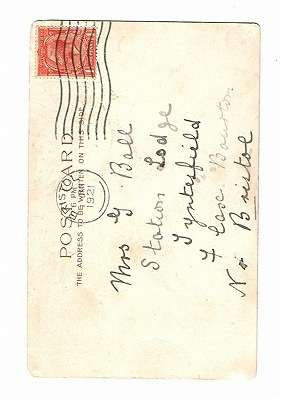 POSTCARD
THE ADDRESS TO BE WRITTEN ON THIS SIDE
6 PM
1921
Mrs G Ball
Station Lodge
Tyntesfield
Flax Bourton
Nr Bristol